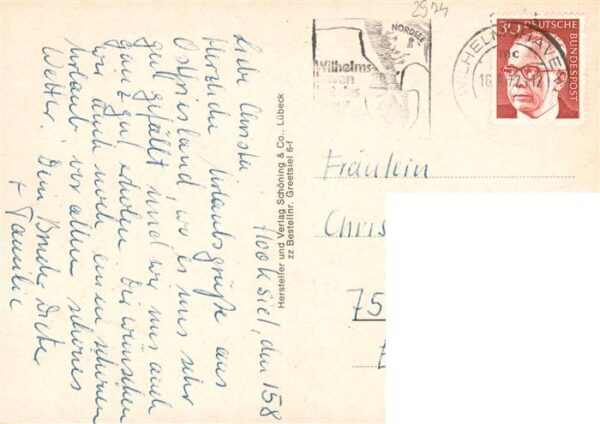 Hooksiel, den 15 8
Liebe Christa.
Herzliche Urlaubsgrüße aus
Ostfriesland, wo es uns sehr
gut gefällt und wir uns auch
ganz gut erholen. Dir wünschen
wir auch noch einen schönen
Urlaub vor allem schönes
Wetter. Dein Bruder Dieter
+ Familie
Hersteller und Verlag Schöning & Co., Lübeck
zz Bestellnr. Greetsiel 6-f
2934
NORDSEE
Wilhelms-
WILHELMSHAVEN
mc
30 DEUTSCHE
BUNDESPOST
Fräulein
Chris
75